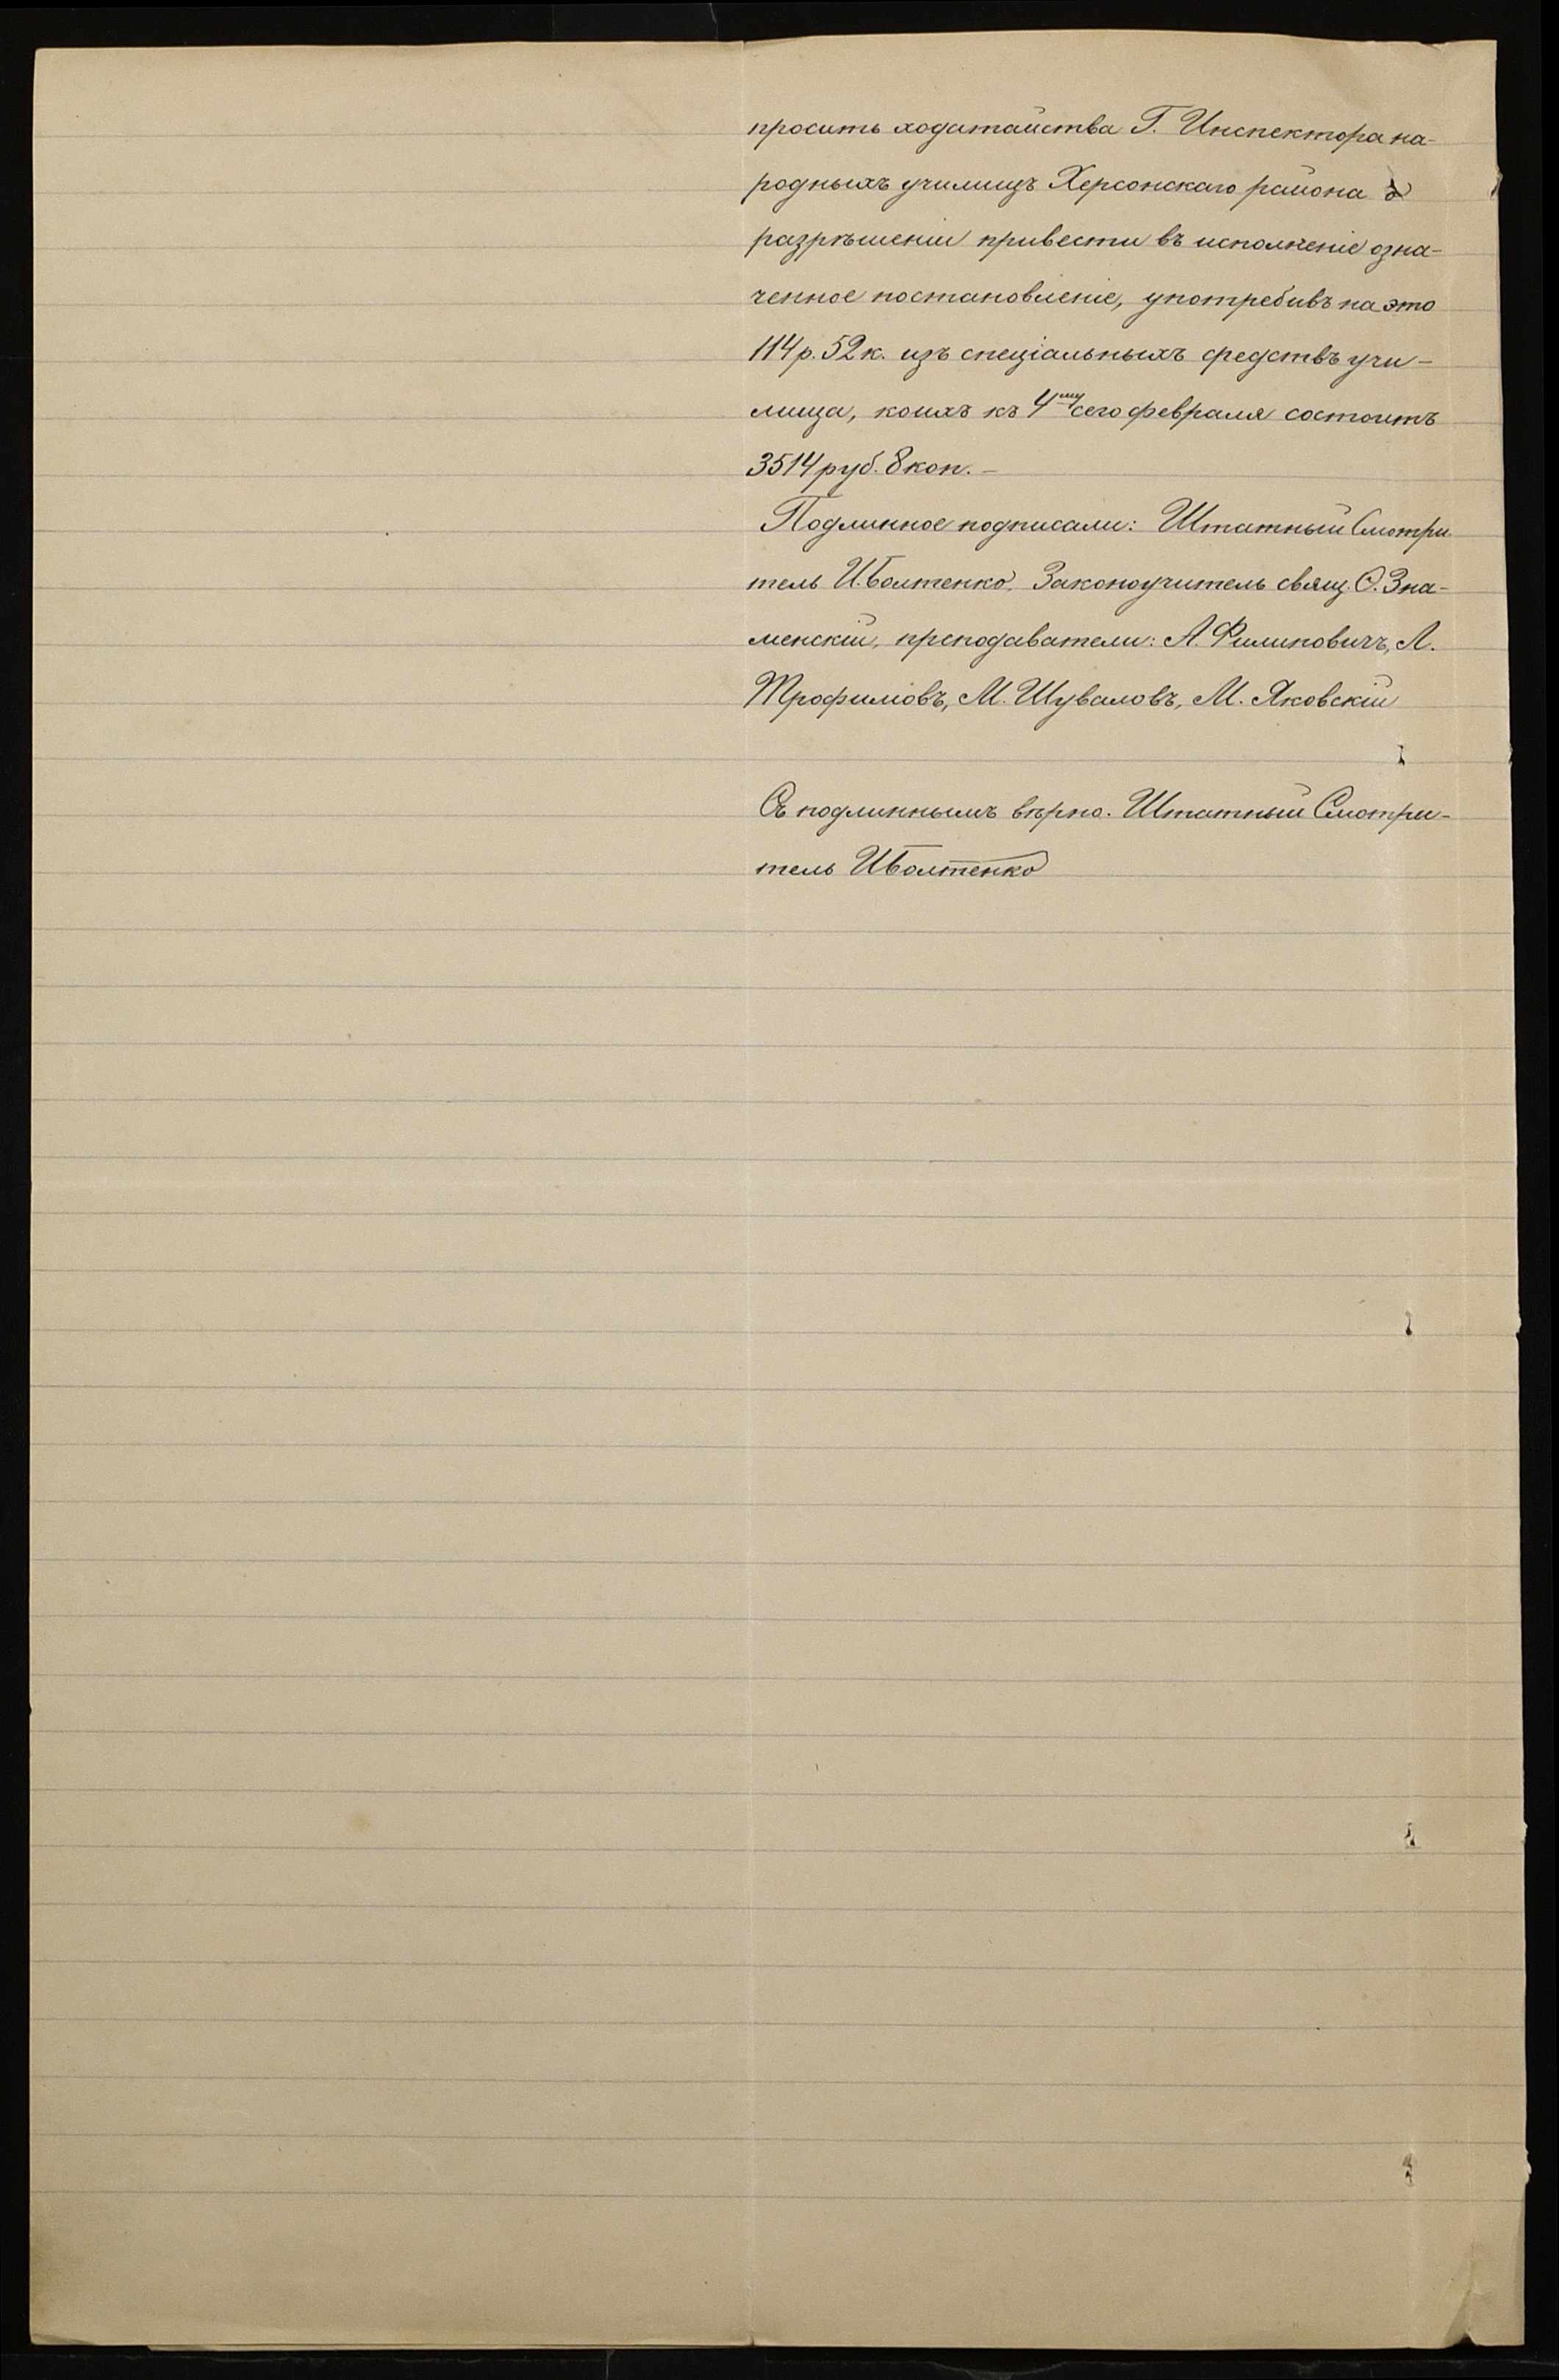 просить ходатайства Г. Инспектора на-
родныхъ училищъ Херсонскаго района о
разрѣшеніи привести въ исполненіе озна-
ченное постановленіе, употребивъ на это
114 р. 52 к. изъ спеціальныхъ средствъ учи-
лища, коихъ къ 4му сего февраля состоитъ
3514 руб. 8 коп. –
Подлинное подписали: Штатный Смотри
тель И. Болтенко, Законоучитель свящ. О. Зна-
менскій, преподаватели: А. Филиповичъ, Л.
Трофимовъ, М. Шуваловъ, М. Яковскій
Съ подлиннымъ вѣрно. Штатный Смотри-
тель ИБолтенко